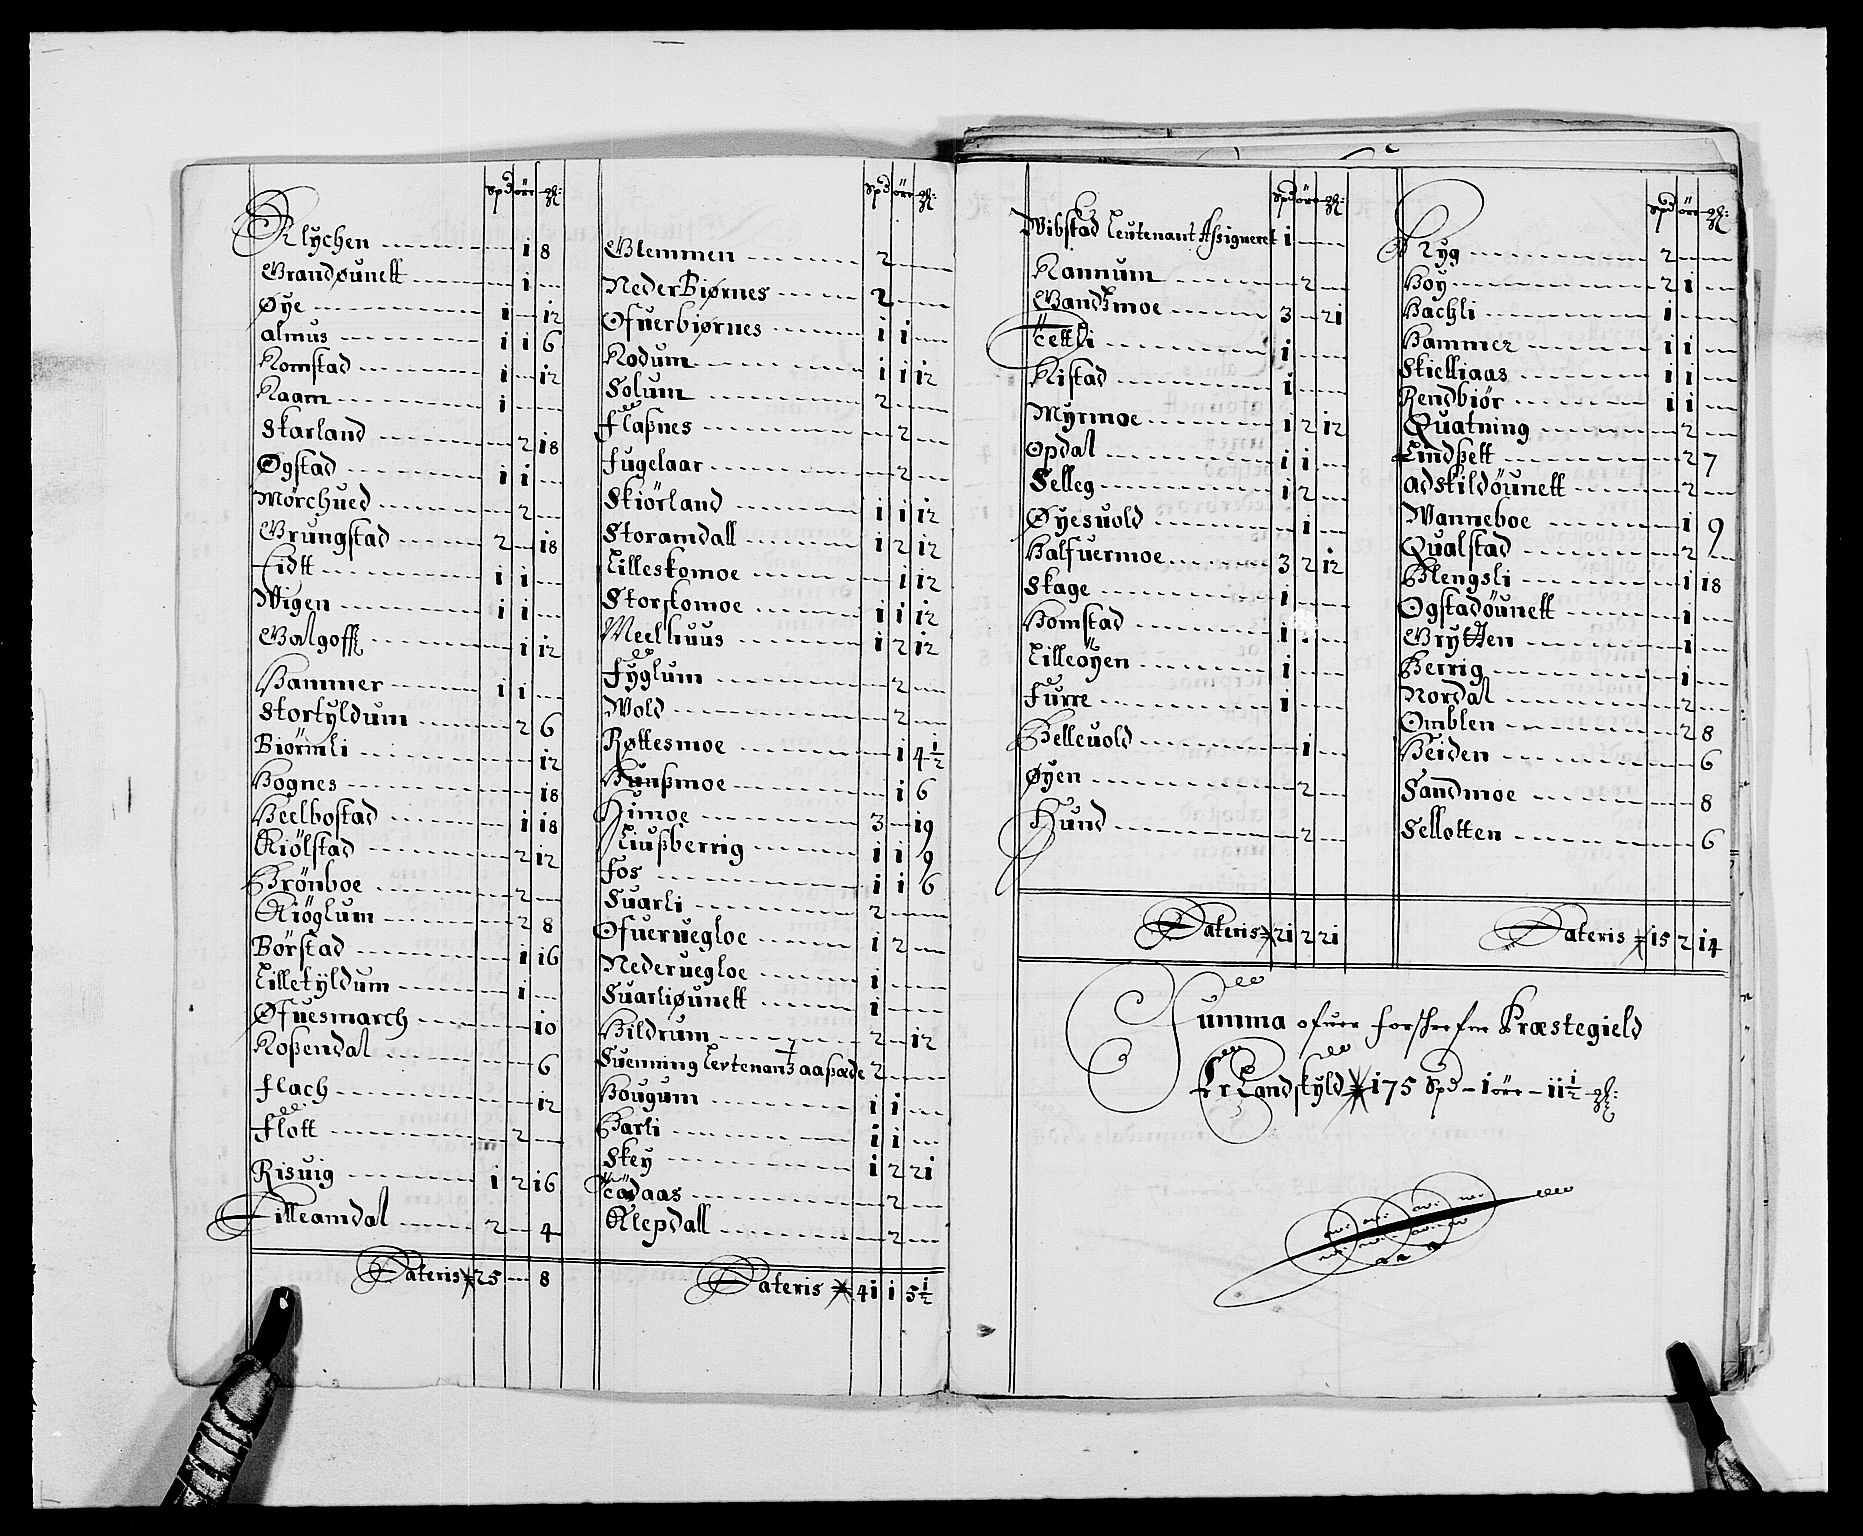 Spd öre mk:
Klychen ------ 1 8
Grandøunett ------ 1 --
Øye ------ 1 -- 12
almus ------ 1 1 6
Komstad ------ 1 -- 12
Kaam ------ 1 ----
Skarland ------ 2 18
Øgstad ------ 1 1 --
Mörchued ------ 2 --
Grungstad ------ 2 -- 18
Eidtt ------ 1 1 --
Wigen ------ 1 1 --
Galgofft ------ 1 12
Hammer ------ 1 1 --
Stortyldum ------ 2 6
Biörmli ------ 12
Hognes ------ 18
Heelbostad ------ 1 18
Kiölstad ------ 2 12
Grönboe ------ 2 --
Kiöglum ------ 2 8
Börstad ------ 1 16
Lilletyldum ------ 1 --
Øfuesmarch ------ 10
Roßendal ------ 6
Flach ------ 12
Flott ------ 2 --
Risuig ------ 1 2 16
Lilleamdal ------ 2 -- 4
Lateris 25 -- 8
Spd öre mk:
Glemmen ------ 2 ----
NederBiørnes ------ 2 ----
Ofuerbiørnes ------ 1 1 --
Rodum ------ 1 1 12
Solum ------ 2 ----
Flaßnes ------ 2 --
Fugelaar ------ 2 --
Skiörland ------ 1 1 12
Storamdall ------ 1 2 12
Lilleskomoe ------ 1 12
Storskomoe ------ 1 1 12
Meelhuus ------ 1 2 12
Fyglum ------ 2 --
Wold ------ 2 --
Røttesmoe ------ 1 4½
Hunßmoe ------ 1 6
Himoe ------ 3 -- 19
Liußberrig ------ 1 1 9
Fos ------ 1 1 6
Suarli ------ 2 ----
Ofueruegloe ------ 1 2 --
Nederuegloe ------ 1 ----
Suarliøunett ------ 1 ----
Hildrum ------ 2 -- 12
Suenning Leutenantz aaßæde 2 ----
Hougum ------ 1 1 --
Harli ------ 1 1 --
Skey ------ 1 2 21
aas ------ 2 --
Klepdall ------ 2 --
Lateris 41 1 5½
Spd öre mk:
Wibstad Leutenant Aßigneret 1 ----
Rannum ------ 2 --
Gandtzmoe ------ 3 -- 21
Tettli ------ 1 ----
Kistad ------ 1 ----
Myrmoe ------ 1 2 12
Opdal ------ 1 1 --
Selleg ------ 1 2 --
Øyesuold ------ 1 --
Halfuermoe ------ 3 2 12
Skage ------ 1 ----
Homstad ------ 1 ----
Lilleöyen ------ 1 ----
Furre ------ 1 ----
Helleuold ------ 1 --
Øyen ------ 2 --
Hund ------ 2 --
Lateris 21 2 21
Spd öre mk:
Ryg ------ 2 ----
Hoy ------ 2 1 --
Hachli ------ 1 ----
Hammer ------ 1 1 --
Skielliaas ------ 1 1 --
Rendbiör ------ 1 1 --
Quatning ------ 2 --
Lindßett ------ 2 7
adskildöunett ------ 2 --
Wanneboe ------ 1 9
Qualstad ------ 2 --
Glengsli ------ 1 18
Ogstadöunett ------ 1 --
Grytten ------ 1 --
Berrig ------ 1 --
Nordal ------ 2 --
Omblen ------ 2 8
Heiden ------ 6
Sandmoe ------ 8
Sellotten ------ 6
Lateris 15 2 14
Summa ofuer forschrefne Præstegield
Er Landskyld 175 Spd - 1 öre - 11½ mk: